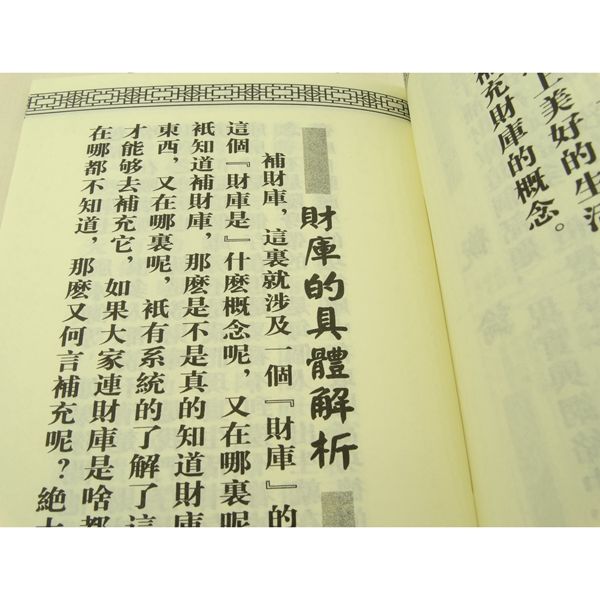 上美好的生活
補充財庫的概念。
財庫的具體解析
補財庫，這裏就涉及一個『財庫』的
這個『財庫是』什麼概念呢，又在哪裏呢
衹知道補財庫，那麼是不是真的知道財庫
東西，又在哪裏呢，衹有系統的了解了這
才能够去補充它，如果大家連財庫是啥都
在哪都不知道，那麼又何言補充呢？絶大